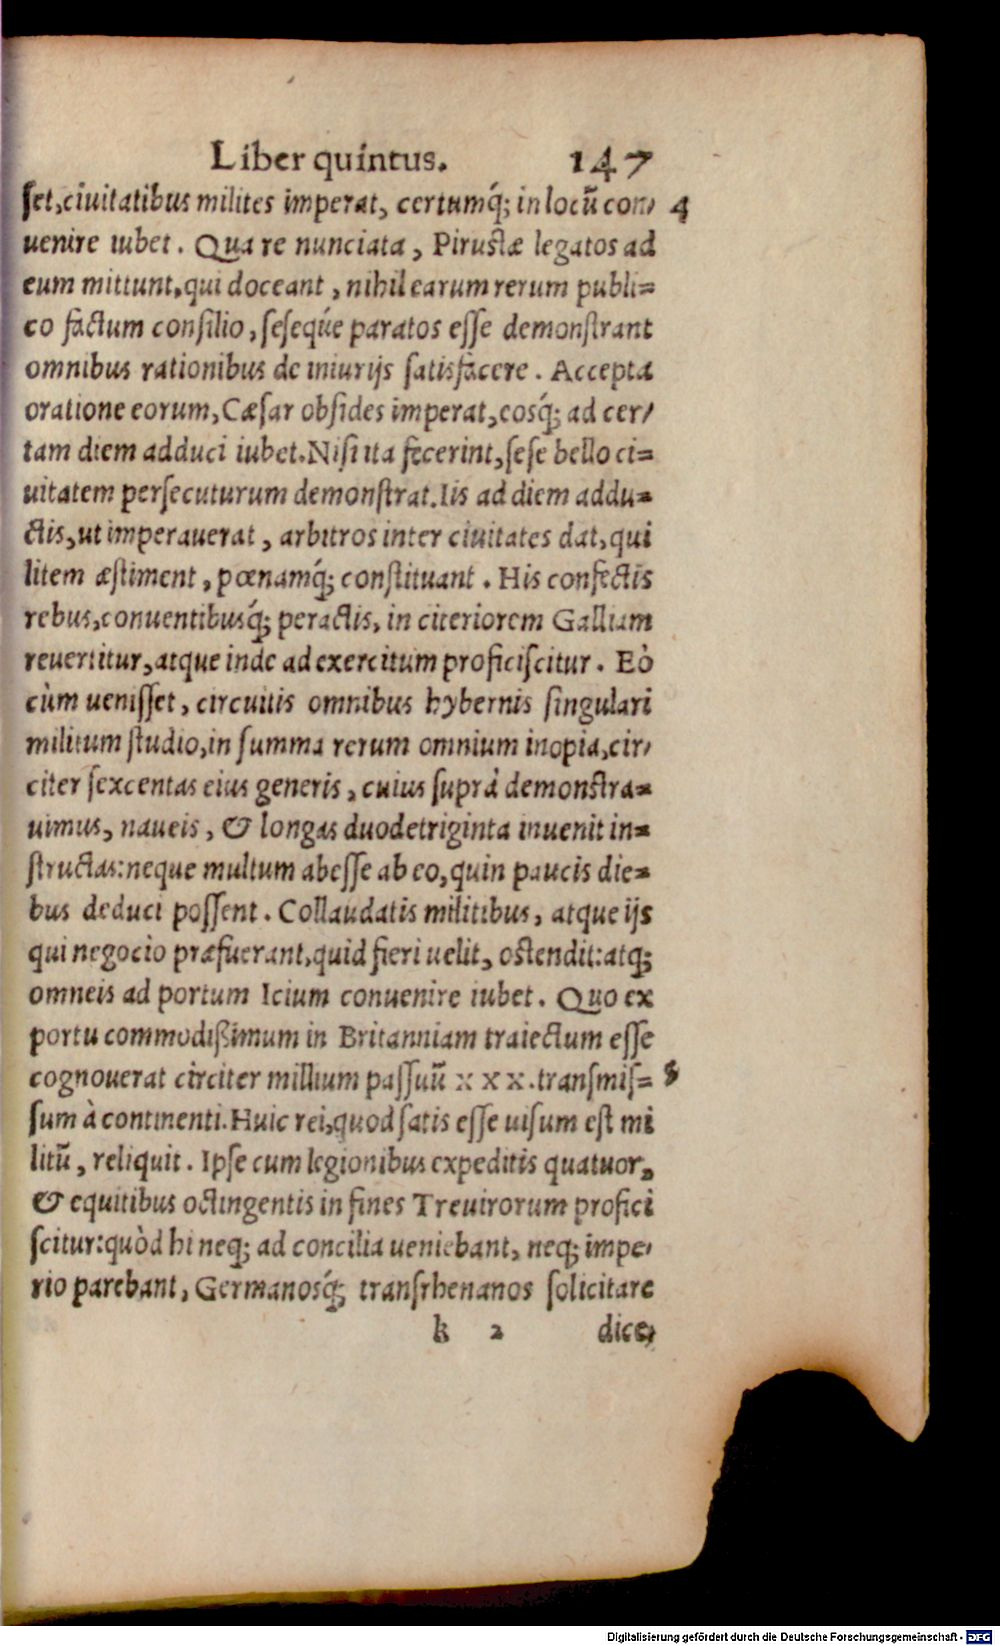 Liber quintus. 147
ſet, ciuitatibus milites imperat, certumq́; in locũ con⸗ 4
uenire iubet. Qua re nunciata, Pirustæ legatos ad
eum mittunt, qui doceant, nihil earum rerum publi⸗
co factum consilio, ſeſeqúe paratos eſſe demonſtrant
omnibus rationibus de iniurijs ſatisfacere. Accepta
oratione eorum, Cæſar obſides imperat, eosq́; ad cer⸗
tam diem adduci iubet. Niſi ita fecerint, ſeſe bello ci⸗
uitatem perſecuturum demonſtrat. Iis ad diem addu⸗
ctis, ut imperauerat, arbitros inter ciuitates dat, qui
litem æſtiment, pœnamq́; conſtituant. His confectis
rebus, conuentibusq́; peractis, in citeriorem Galliam
reuertitur, atque inde ad exercitum proficiſcitur. Eò
cùm ueniſſet, circuitis omnibus hybernis ſingulari
militum ſtudio, in ſumma rerum omnium inopia, cir⸗
citer ſexcentas eius generis, cuius ſuprà demonstra⸗
uimus, naueis, & longas duodetriginta inuenit in⸗
ſtructas: neque multum abeſſe ab eo, quin paucis die⸗
bus deduci poſſent. Collaudatis militibus, atque ijs
qui negocio præfuerant, quid fieri uelit, ostendit: atq;
omneis ad portum Icium conuenire iubet. Quo ex
portu commodißimum in Britanniam traiectum eſſe
cognouerat circiter millium paſſuũ xxx. tranſmiſ⸗ 5
ſum à continenti. Huic rei, quod ſatis eſſe uiſum eſt mi
litũ, reliquit. Ipſe cum legionibus expeditis quatuor,
& equitibus octingentis in fines Treuirorum profici
ſcitur: quòd hi neq; ad concilia ueniebant, neq; impe⸗
rio parebant, Germanosq́; tranſrhenanos ſolicitare
k 2 dice⸗
Digitalisierung gefördert durch die Deutsche Forschungsgemeinschaft - DFG